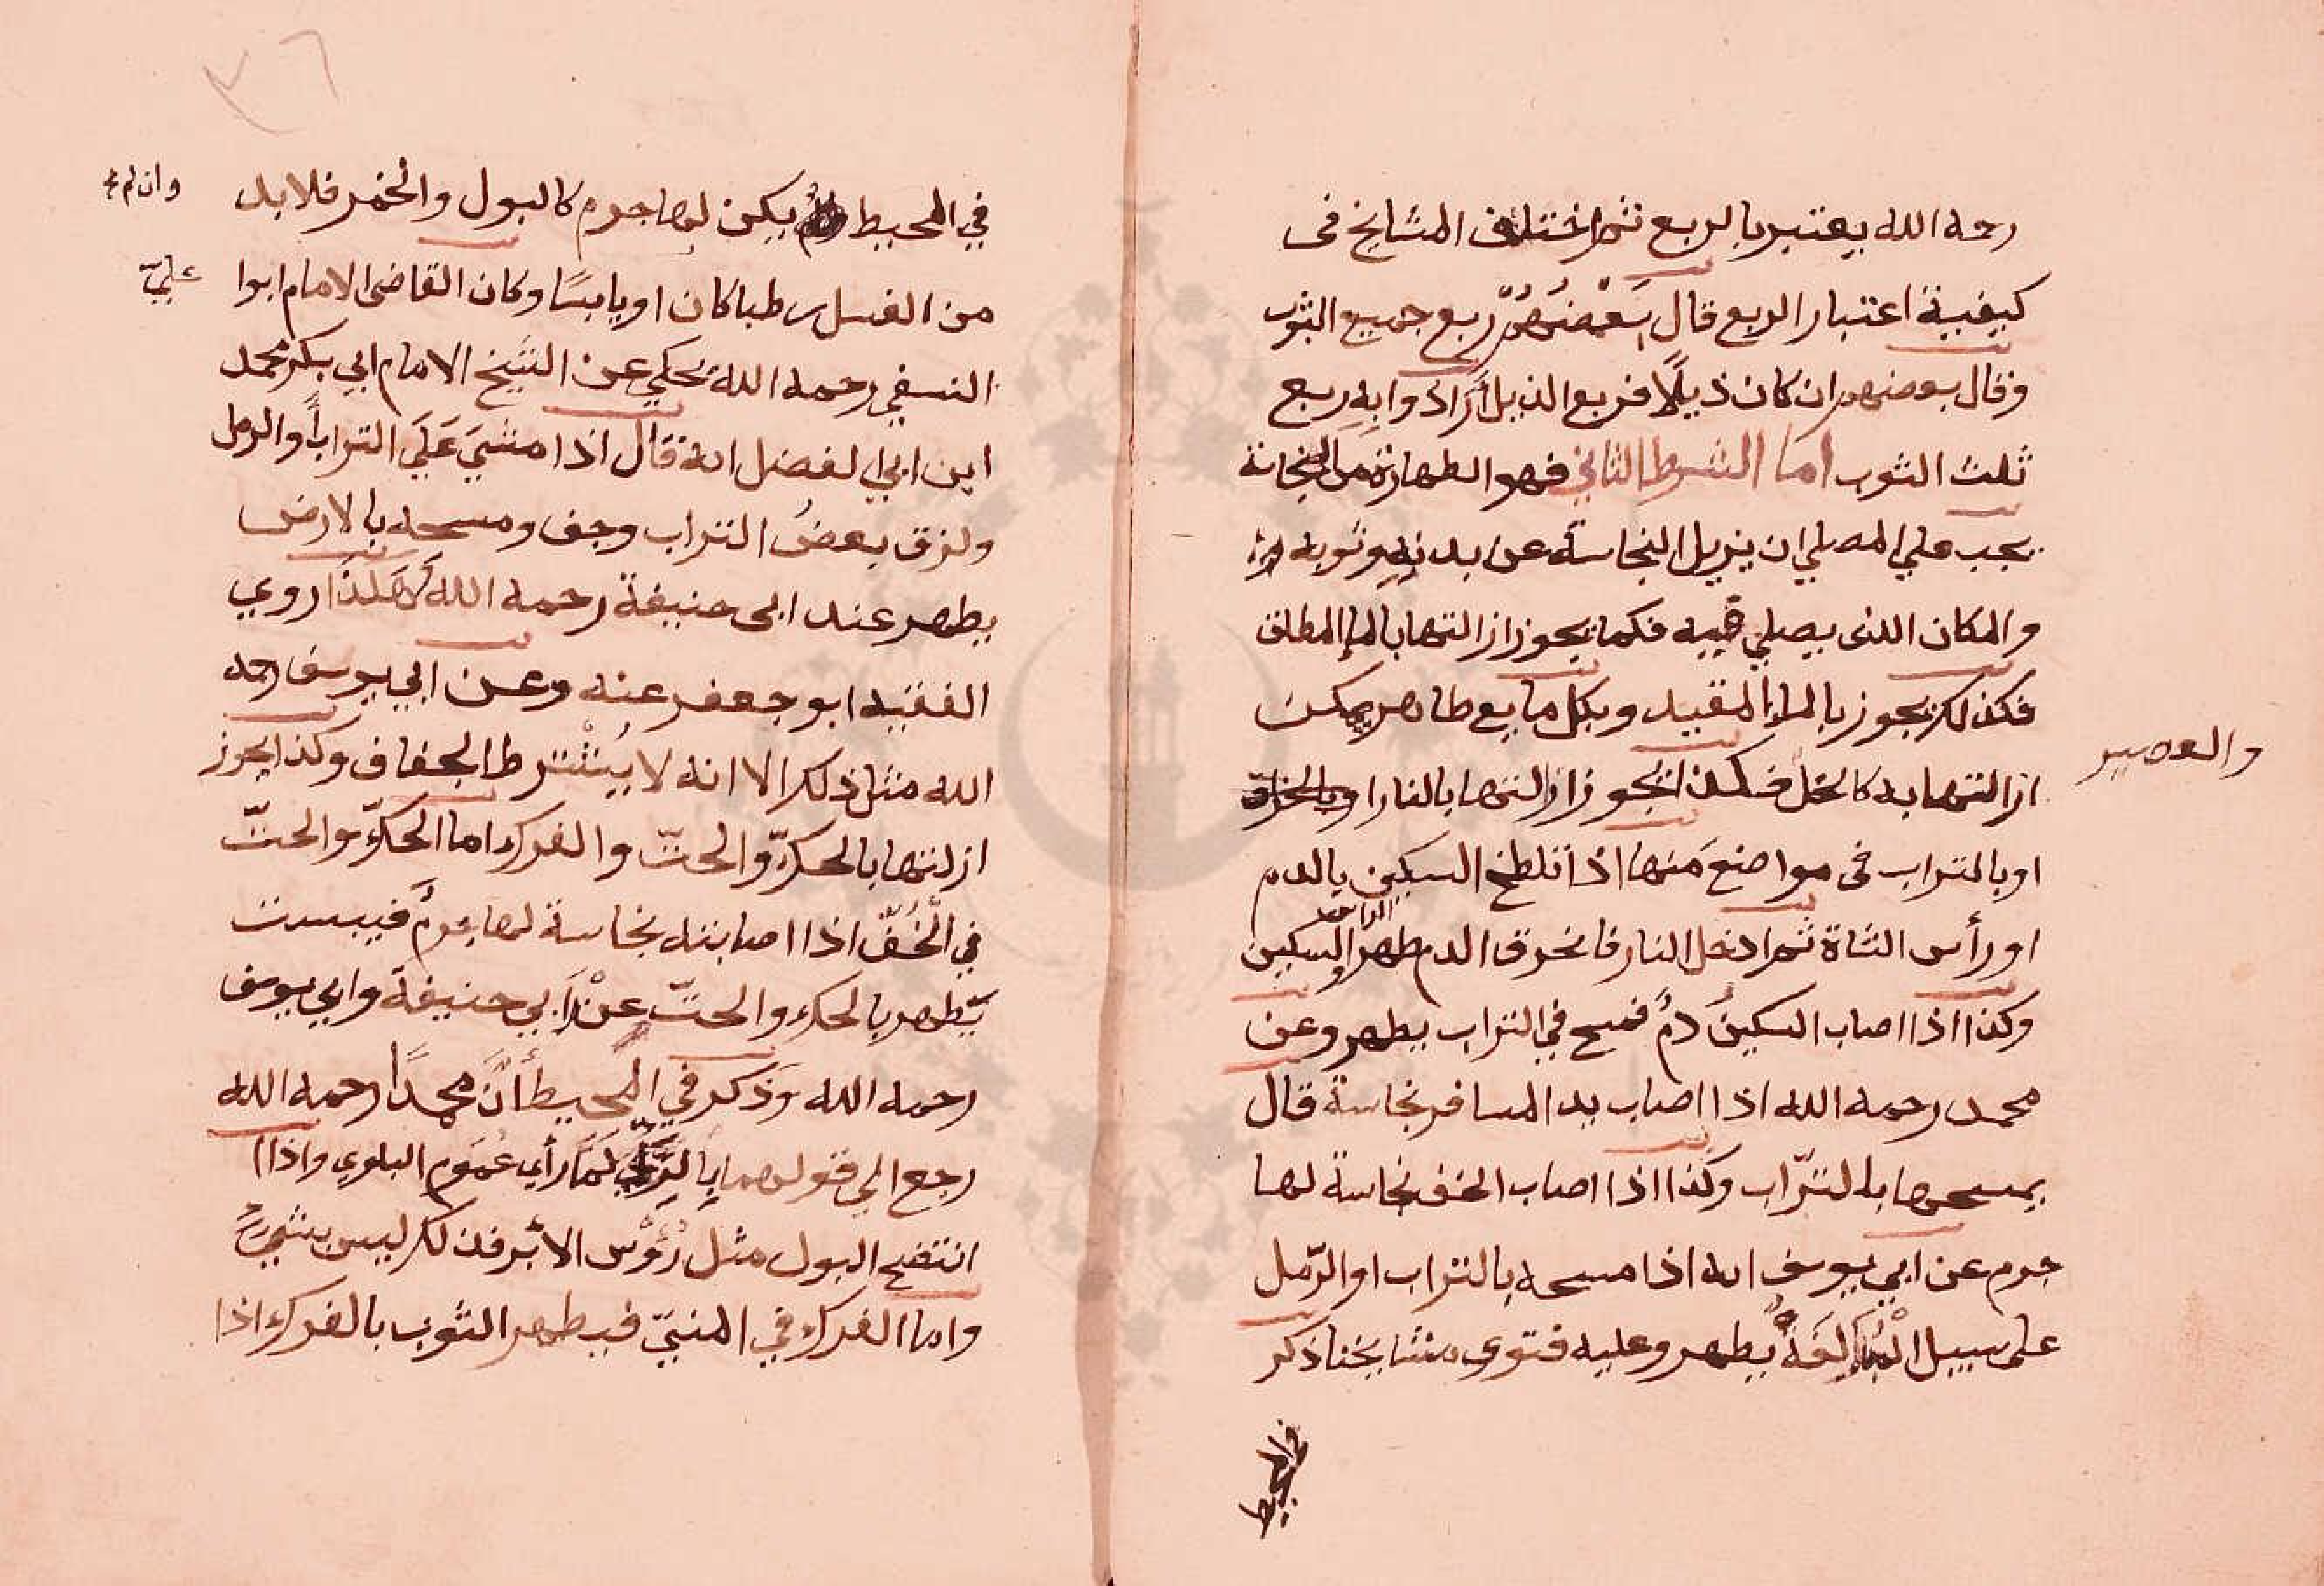 رحه الله يعتبر بالربع ثم اختلف المشايخ فى
كيفية اعتبار الربع قال بَعْضُهُمْ ربع جميع الثوب
وقال بعضهم ان كان ذيلًا فربع الذيل أرَادوا بِهِ ربع
ثلث الثوب اما الشرط الثاني فهو الطهارة من النجاسة
يجب علي المصلي ان يزيل النجاسة عن بدنِهِ وثوبه
والمكان الذى يصلي فيه فكما يجوز ازالتها بالماء المطلق
فكذلك يجوز بالماء المقيد وبكل مايع طاهر يمكن
ازالتها به كالخل فكذا يجوز ازالتها بالنار او
والعصير
او بالتراب فى مواضع منها اذا تلطخ السكين بالدم
او رأس الشاة ثم ادخل النار فاحترق الدم طهر الراس والسكين
وكذا اذا اصاب السكينَ دمٌ فمسح في التراب يطهر وعن
محمد رحمه الله اذا اصاب يد المسافر نجاسة قال
يمسحها بالتّراب وكذا اذا اصاب الخف نجاسة لها
جرم عن ابي يوسف انه اذا مسحه بالتراب او الرّمل
على سبيل الْمُبَالَغَةِ يُطهر وعليه فتوى مشايخنا ذكر
في المحيط
٣٦
في المحيط يكن لها جرم كالبول والخمر فلابد
وان لم
من الغسل رطبا كان او يابسًا وكان القاضى الامام ابوا
عليّ
النسفي رحمه الله يحكي عن الشيخ الامام ابي بكر محمد
ابن ابي الفضل انه قال اذا مشيَ عَلَي التراب أو الرمل
ولزق بعضُ التراب وجف ومسحه بالارض
يطهر عند ابى حنيفة رحمه الله هَكَذَا روي
الفقيه ابو جعفر عنه وعن ابي يوسف رحمه
الله مثل ذلك الا انه لا يُشْترط الجفاف وكذا يجوز
ازلتها بالحكّ والحتّ والفرك اما الحكّ والحتّ
في الْخُفِّ اذا اصابته نجاسة لها جرمٌ فيبست
يّطهر بالحك والحتّ عنْد أَبي حنيفة وابي يوسف
رحمه الله وَذكر في المحيط أنَّ محمدًا رحمه الله
رجع الي قولهما بِالرَّيِّ لَمَّا رأى عُمَوم البلوي واذا ا
انتضح البول مثل رُؤْس الأبر فذلك ليس بشيءٍ
واما الفرك في المنيّ فيطهر الثوب بالفرك اذا